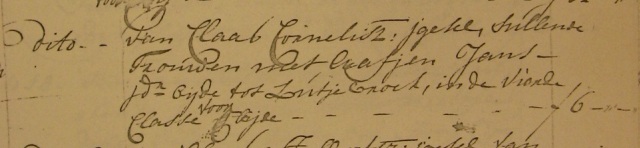 dito - - van Claas Cornelisz: jgesel, sullende
trouwen met Aafjen Jans -
jdr beijde tot Lutje broek, in de vierde
Classe voor haer - - - - - - - f 6 - " -